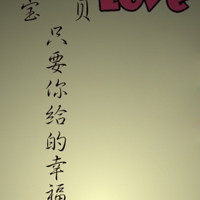 宝贝
LOVE
只要你给的幸福